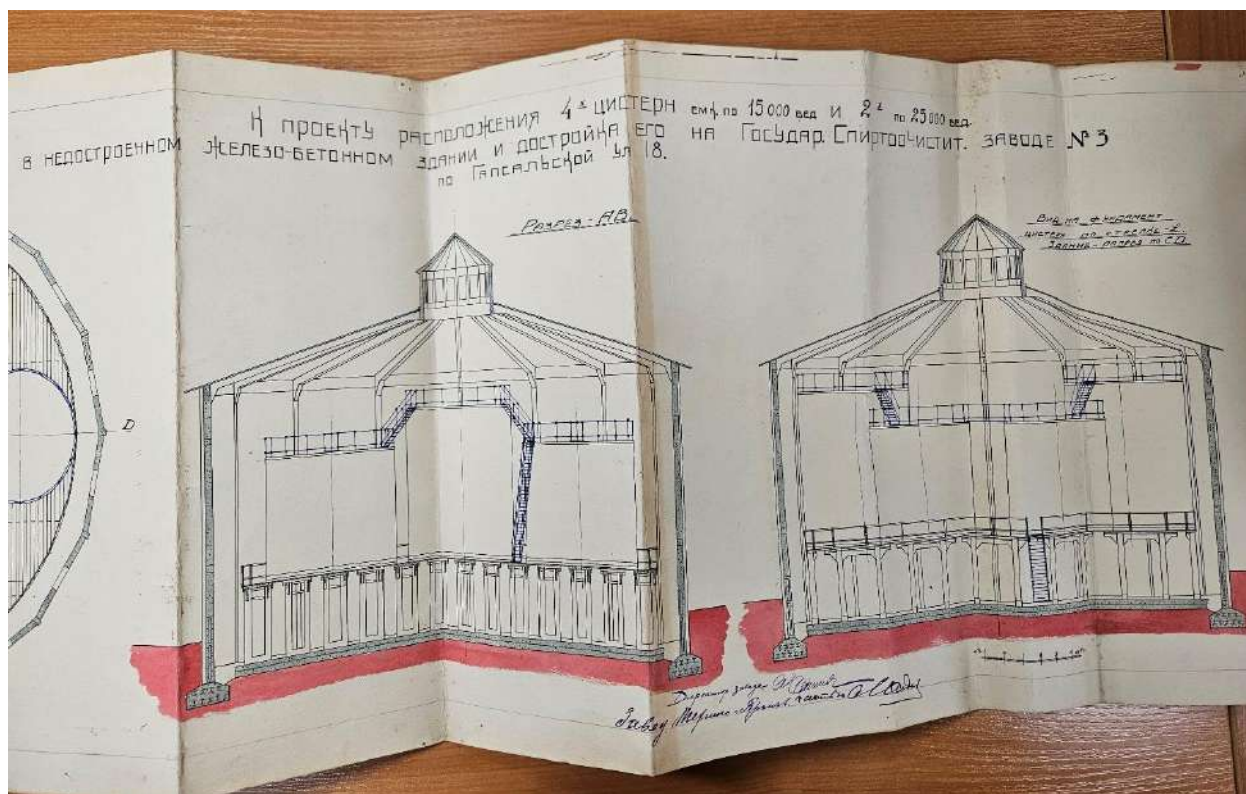 К ПРОЕКТУ РАСПОЛОЖЕНИЯ 4х ЦИСТЕРН емк. по 15000 вед И 2х по 25000 вед.
В НЕДОСТРОЕННОМ ЖЕЛЕЗО-БЕТОННОМ ЗДАНИИ И ДОСТРОЙКА ЕГО НА ГОСУДАР. СПИРТООЧИСТИТ. ЗАВОДЕ № 3
ПО ГАПСАЛЬСКОЙ УЛ 18.
РАЗРЕЗ-АВ.
ВИД НА ФУНДАМЕНТ
ЦИСТЕРН ПО СТРЕЛЕ-Е.
ЗДАНИЕ-РАЗРЕЗ ПО СД.
D
Директор завода
Завед